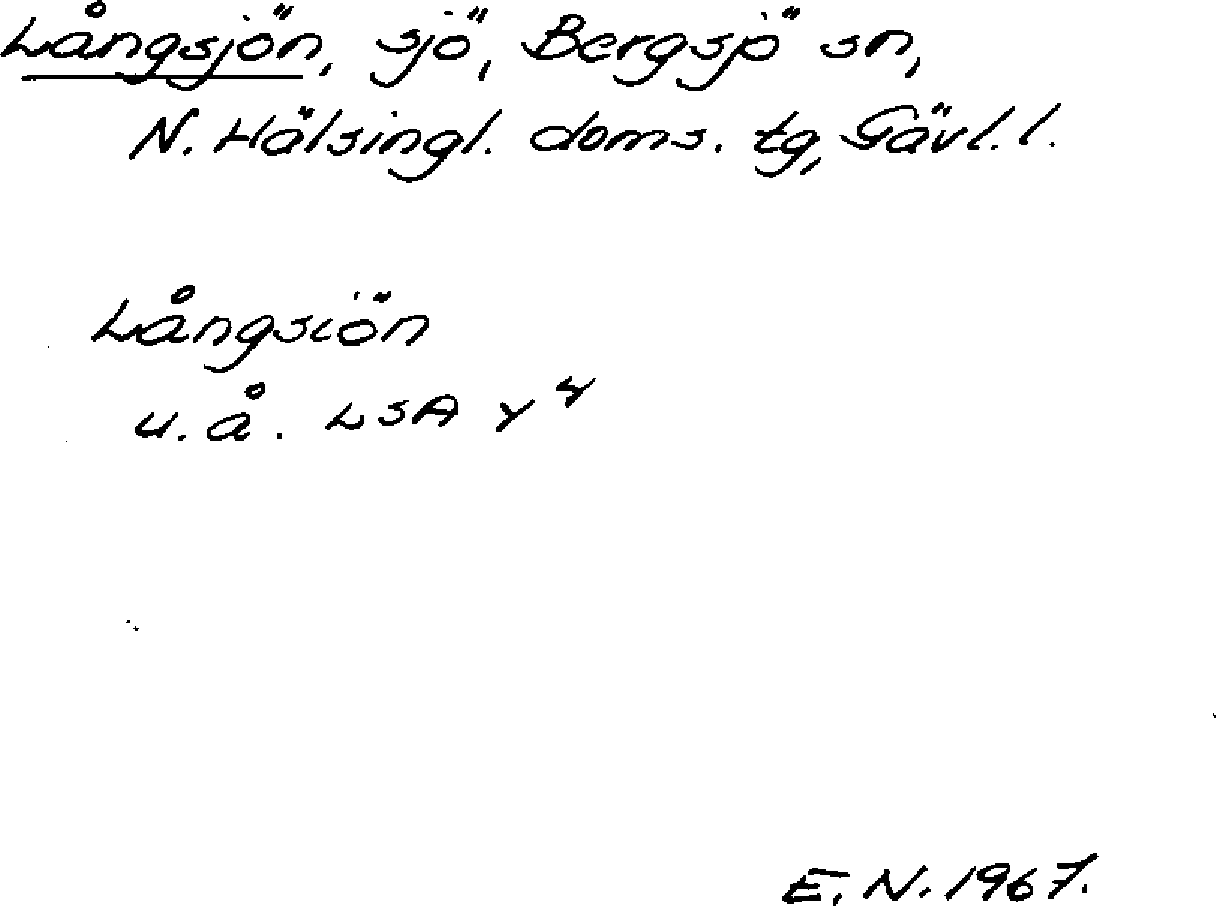 Långsjön, sjö, Bergsjö sn,
N. Hälsingl. doms. tg, Gävl. l.
Långsiön
u. å. LSA Y⁴
E. N. 1967.